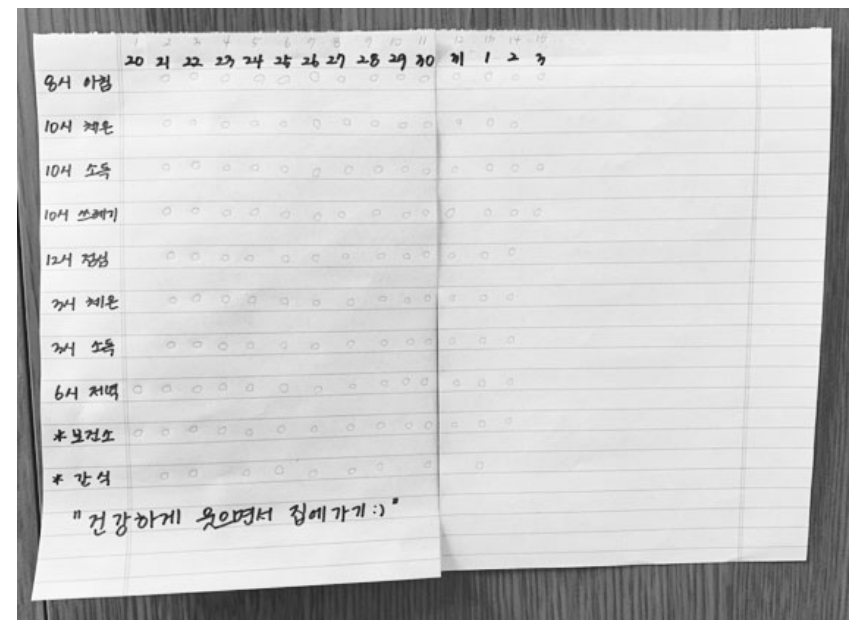 1 2 3 4 5 6 7 8 9 10 11 12 13 14 15
20 21 22 23 24 25 26 27 28 29 30 31 1 2 3
8시 아침
10시 체온
10시 소독
10시 쓰레기
12시 점심
3시 체온
3시 소독
6시 저녁
* 보건소
* 간식
"건강하게 웃으면서 집에가기:)"